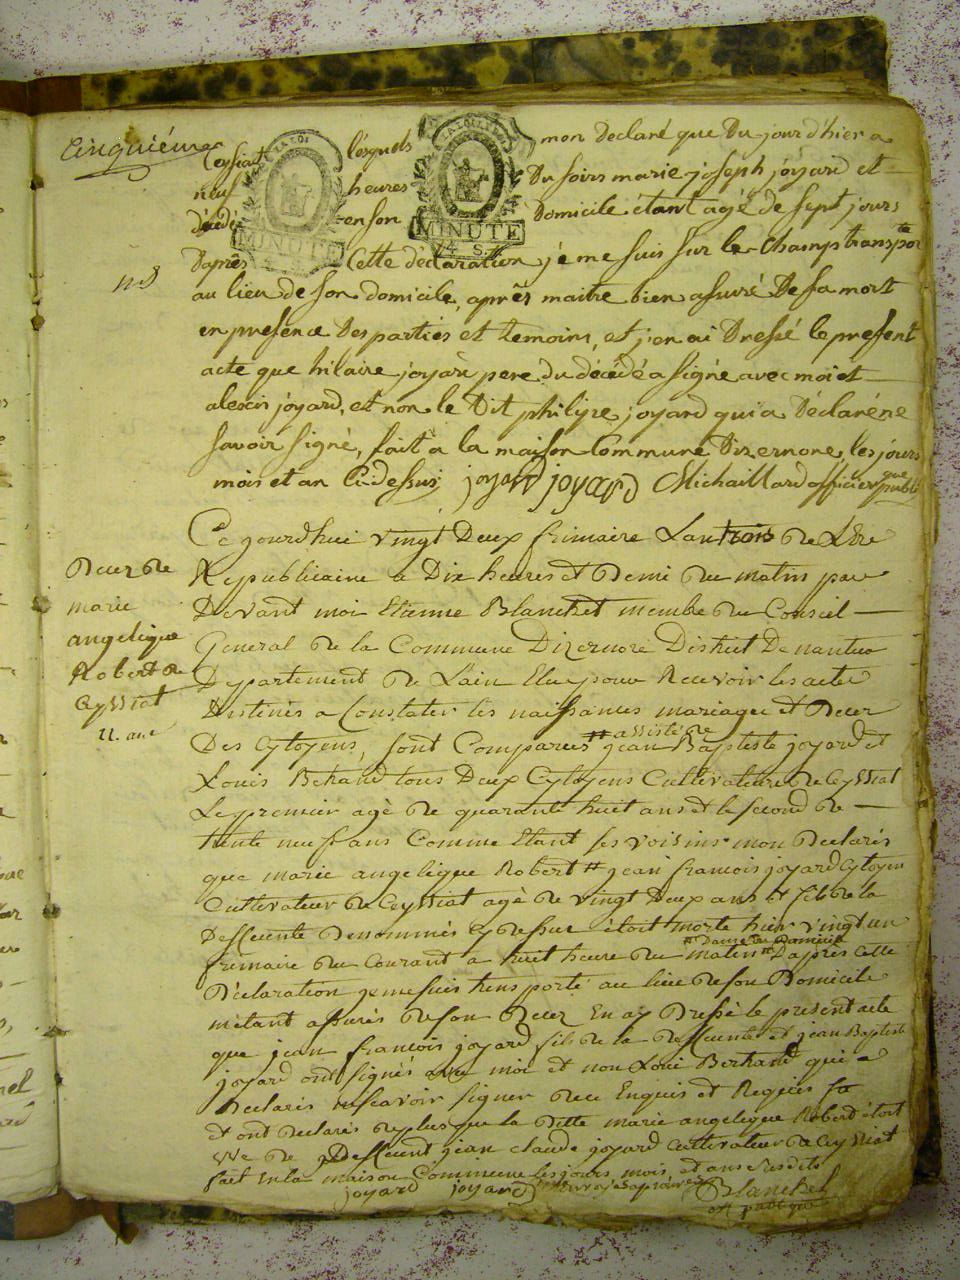 Cinquiéme
Cessiat lésquels mon Declaré que Du jour d'hier a
neuf heures Du soirs marie joseph joyard et
décédé en son Domicile étant agé de sept jours
MINUTE MINUTE
4 S
D'aprês Cette declaration je me suis sur le Champ transporté
au lieu de son domicile, aprês maitre bien assuré De sa mort
en presence Des parties et temoins, et j'en ai Dressé le present
acte que hilaire joyard pere du décédé a signé avec moi et
alexis joyard, et non le Dit philipe joyard qui a Déclaré ne
savoir signé, fait a la maison Commune Dizernore, les jours
mois et an Cidessus joyard joyard Michaillard officier public
Deces de
marie
angelique
Robert de
Ceyssiat
11. an
Ce jourdhui vingt Deux frimaire Lan trois de Lere
Republicaine a Dix heures et Demi du matin par
Devant moi Etienne Blanchet membre du Conseil
General de la Commune Dizernore District De nantua
Departement de Lain Elu pour Recevoir les actes
Destinés a Constater les naissances mariages et Deces
Des Cytoyens, sont Comparus # assisté de jean Baptiste joyard et
Louis Bertrand tous Deux Cytoyens Cultivateurs de Ceyssiat
Le premier agé de quarante huit ans et le second de
trente neuf ans Comme Etant ses voisins mon Declarés
que marie angelique Robert # jean francois joyard Cytoyen
Cultivateur de Ceyssiat agé de vingt Deux ans et fils de la
Deffuente Denommés cy dessus étoit morte hier vingt un
frimaire du Courant a huit heure du matin # Dans son Domicile D'aprés Cette
Déclaration je me suis transporté au lieu de son Domicile
m'etant assurés de son Deces En ay Dressé le présent acte
que jean francois joyard fils de la deffuente et jean Baptiste
joyard ont signés avec moi et non Loui Bertrand qui a
Declarés ne scavoir signer de ce Enquis et Requis
et ont declarés de plus que la Ditte marie angelique Robert étoit
Ve de Deffeunt jean claude joyard Cultivateur de Ceyssiat
fait En la maison Commune les jours mois et ans susdits
joyard joyard Blanchet
off publique